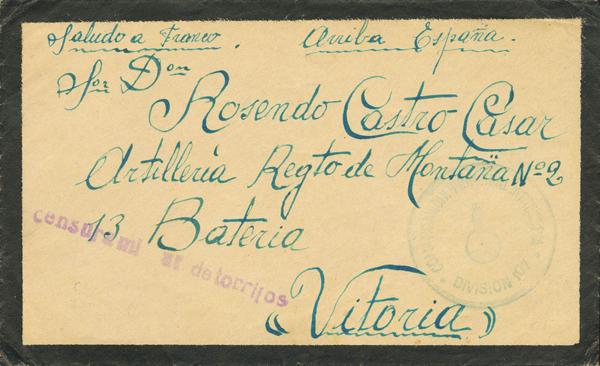 Saludo a Franco. Arriba España.
Sor Don
Rosendo Castro Casar
Artillería Regto de Montaña Nº 2
13 Bateria
censura mi ar de torrijos
DIVISION 107
«Vitoria»